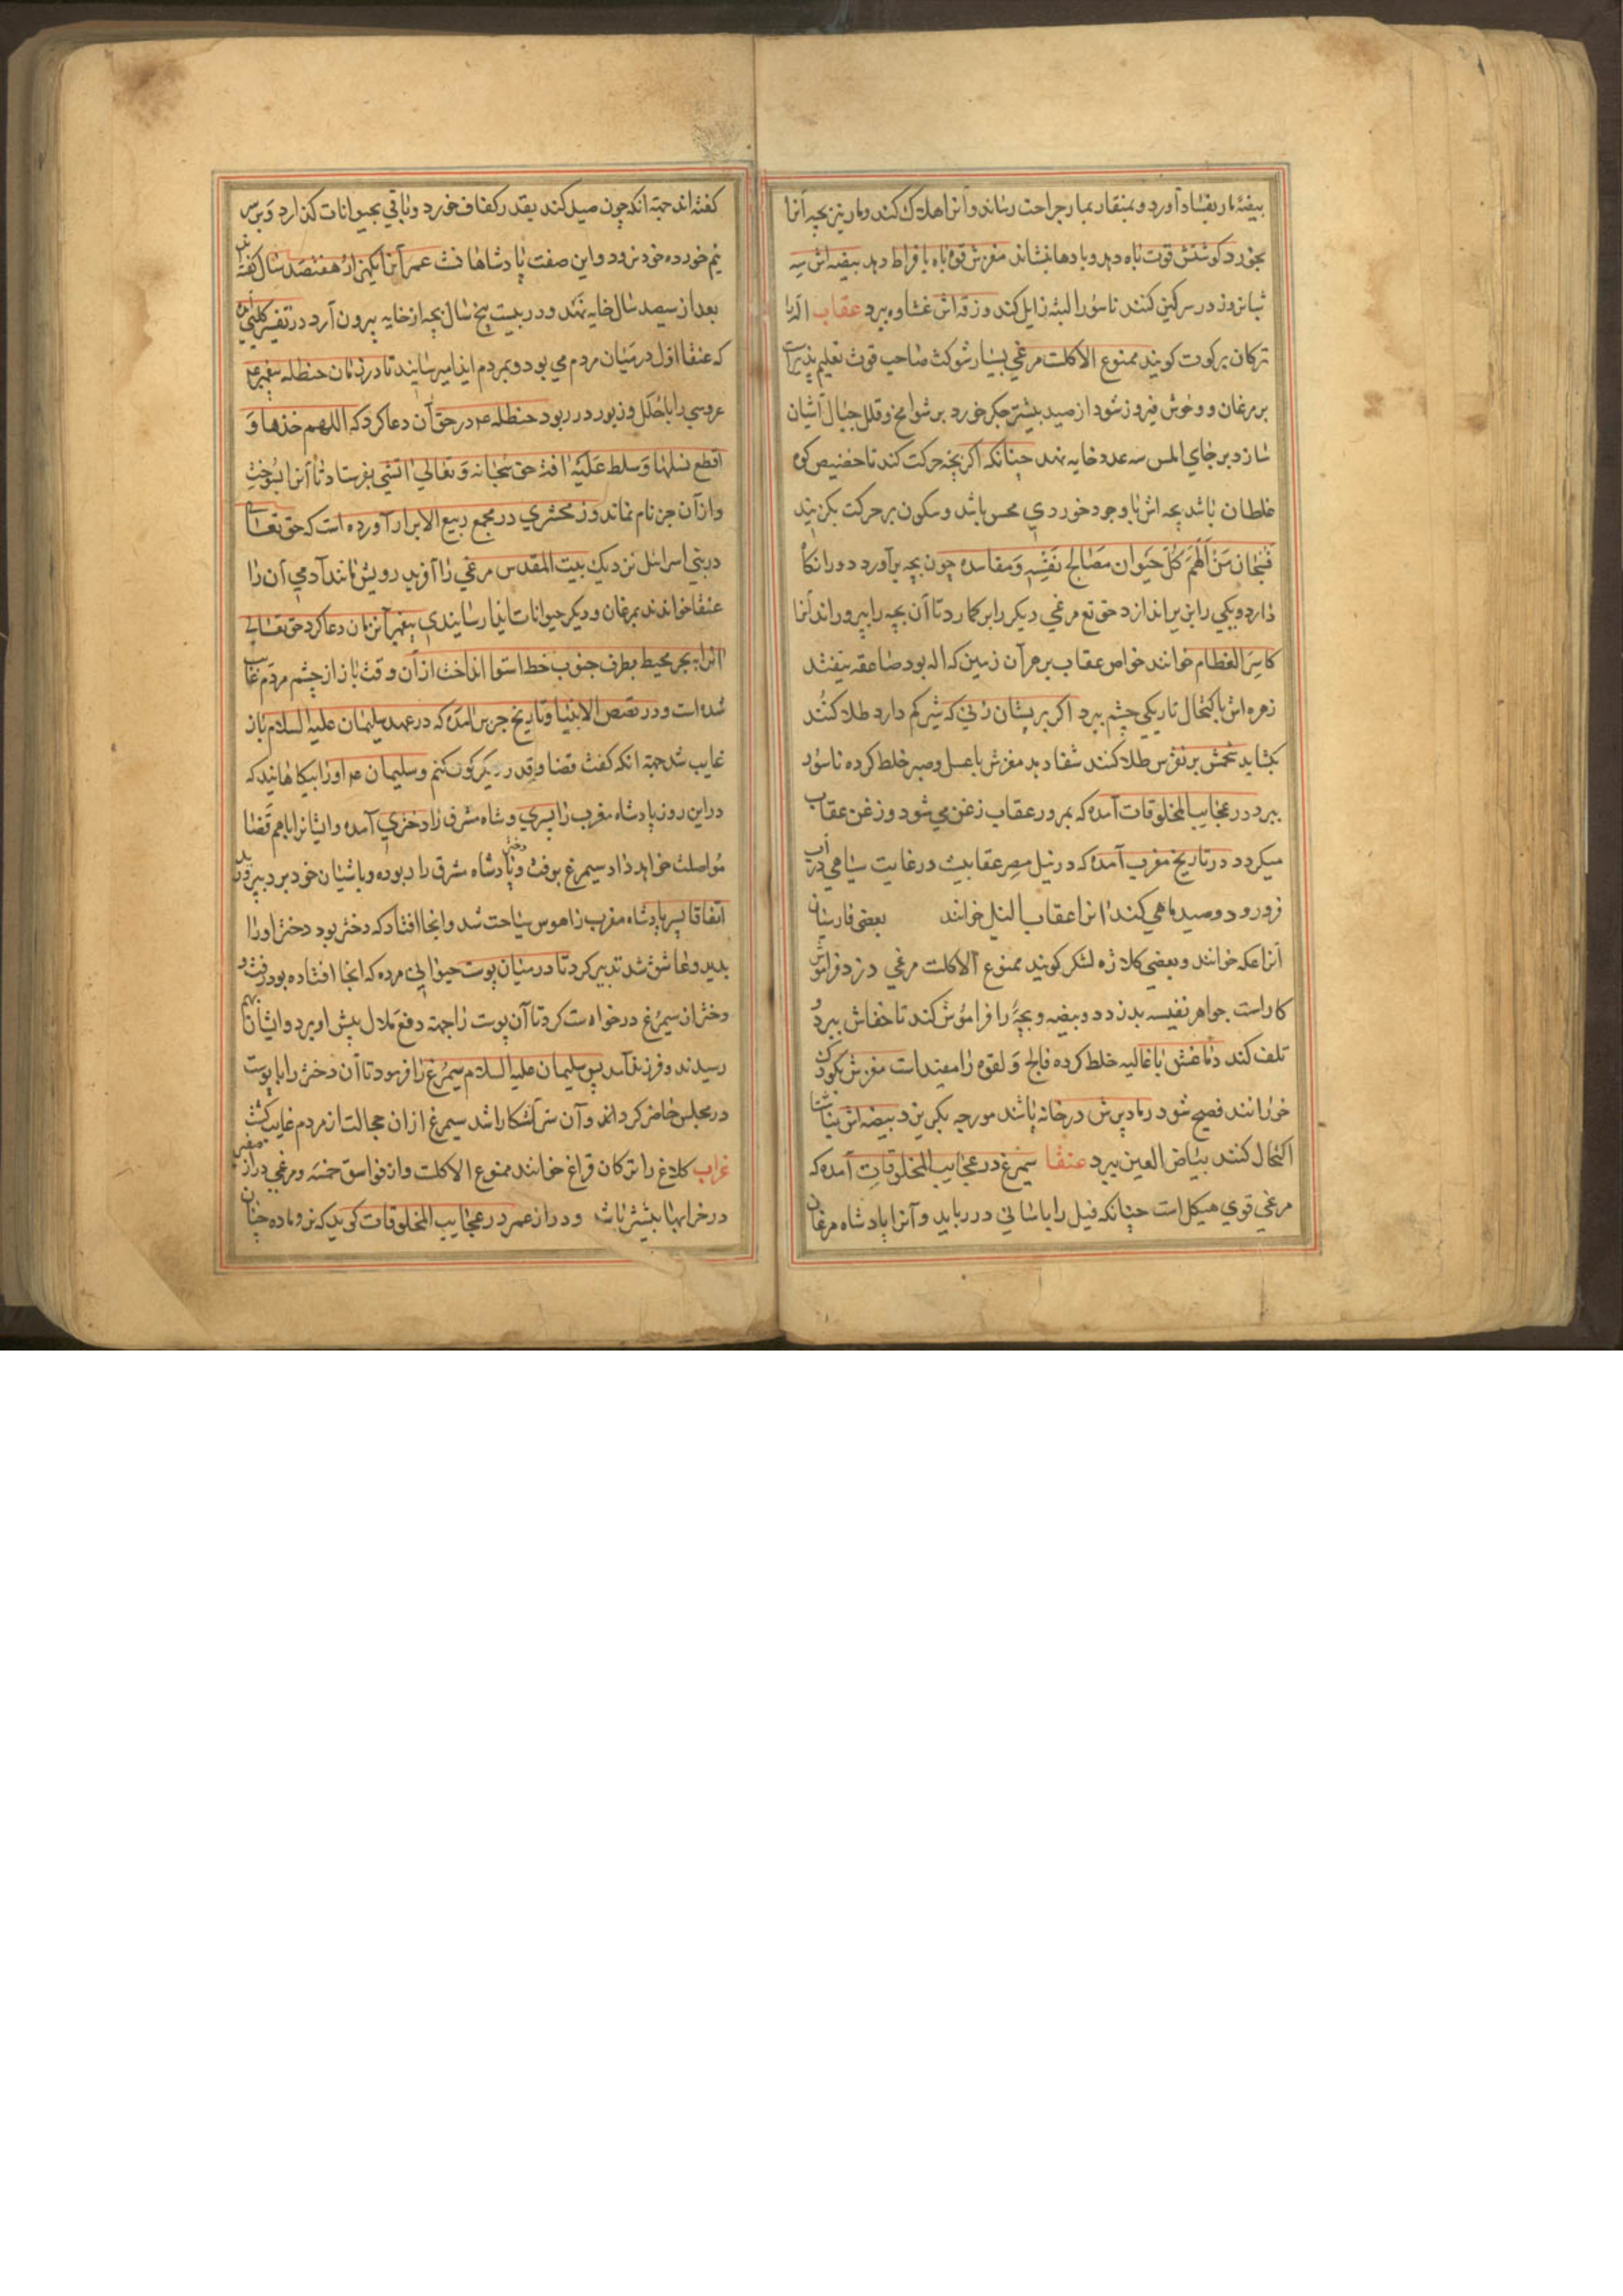 بیضهٔ مار بفساد آورد و بمنقار بمار جراحت رساند و آنرا هلاک کند و مار نیز بچه آنرا
بخورد کوشتش قوت باه دهد و بادها بنشاند مغزش قوة باه بافراط دهد بیضه اش سه
شبانروز در سرکین کنند ناسور را البته زایل کند و زقه اش غشاوه ببرد عقاب آنرا
ترکان برکوت کویند ممنوع الاکلت مرغی بسیار شوکت صاحب قوت تعلیم پذیر است
بر مرغان و وحوش فیروز شود از صید بیشتر جکر خورد بر شوامخ و قلل جبال آشیان
سازد بر جای املس سه عدد خایه نهد چنانکه اکر بچه حرکت کند تا حضیض کوه
غلطان باشد بچه اش با وجود خوردی محس باشد و سکون بر حرکت بکزیند
فسبحان من الهم کل حیوان مصالح نفسه و مفاسده چون بچه برآورد دو را نکاه
دارد و یکی را بزیر اندازد حق تع مرغی دیکر را بر کمارد تا آن بچه را بپروراند آنرا
کاسر العظام خوانند خواص عقاب بر هر آن زمین که اله بود صاعقه نیفتد
زهره اش باکتحال تاریکی چشم ببرد اکر بر پستان زنی که شیر کم دارد طلا کنند
بکشاید شحمش بر نقرس طلا کنند شفا دهد مغزش با عسل و صبر خلط کرده ناسور
ببرد در عجایب المخلوقات آمده که بمرور عقاب زغن می شود و زغن عقاب
میکردد در تاریخ مغرب آمده که در نیل مصر عقابیست در غایت سیاهی در آب
فرو رود و صید ماهی کند انرا عقاب النیل خوانند بعضی فارسیان
آنرا عکه خوانند و بعضی کلاژه لشکر کویند ممنوع الاکلت مرغی دزد فراموش
کار است جواهر نفیسه بدزدد و بیضه و بچه را فراموش کند تا خفاش ببرد و
تلف کند دماغش با غالیه خلط کرده فالج و لقوه را مفید است مغزش بکودک
خورانند فصیح شود رماد پرش در خانه پاشند مورچه بکریزد بیضه اش
اکتحال کنند بیاض العین ببرد عنقا سیمرغ در عجایب المخلوقات آمده که
مرغی قوی هیکل است چنانکه فیل را باسانی در رباید و آنرا پادشاه مرغان
کفته اند جهة انکه چون صید کند بقدر کفاف خورد و باقی بحیوانات کذارد و بر سر
نیم خورده خود نرود و این صفت پادشاهانست عمر آنرا یکهزار و هفتصد سال کفته
بعد از سیصد سال خایه نهد و در بیست پنج سال بچه از خایه بیرون آرد در تفسیر کلبی
که عنقا اول در میان مردم می بود و بمردم ایذا میرسانید تا در زمان حنظله پیغمبر عم
عروسی را با حلل و زیور در ربود حنظله عم در حق آن دعا کرد که اللهم خذها و
اقطع نسلها و سلط علیها آفة حق سبحانه و تعالی آتشی بفرستاد تا آنرا بسوخت
و از آن جز نام نماند و زمخشری در مجمع ربیع الابرار آورده است که حق تعالی
در بنی اسرائیل نزدیک بیت المقدس مرغی را آفرید رویش مانند آدمی آن را
عنقا خواندند بمرغان و دیکر حیوانات ایذا رسانیدی پیغمبر آنزمان دعا کرد حق تعالی
آنرا به بحر محیط بطرف جنوب خط استوا انداخت از آن وقت باز از چشم مردم غایب
شده است و در قصص الانبیا و تاریخ جزیر آمده که در عهد سلیمان علیه السلام باز
غایب شد جهة انکه کفت قضا و قدر دیکر کون کنم و سلیمان عم او را بیکاهانید که
در این روز پادشاه مغرب را پسری و شاه مشرق را دختری آمده و ایشانرا باهم قضا
مواصلت خواهد داد سیمرغ برفت و دختر پادشاه مشرق را ربوده و باشیان خود برد
اتفاقا پسر پادشاه مغرب را هوس سیاحت شد و آنجا افتاد که دختر بود دختر او را
بدید و عاشق شد تدبیر کرد تا در میان پوست حیوانی مرده که آنجا افتاده بود رفت و
دختر از سیمرغ درخواست کرد تا آن پوست را جهة دفع ملال پیش او برد و ایشان باهم
رسیدند و فرزند آمد پس سلیمان علیه السلام سیمرغ را فرمود تا آن دختر را با پوست
در مجلس حاضر کردانید و آن سر آشکارا شد سیمرغ از ان خجالت از مردم غایب کشت
غراب کلاغ را ترکان قراغ خوانند ممنوع الاکلت و از فواسق خمسه و مرغی دراز
در خرابها بیشتر باشد و دراز عمر در عجایب المخلوقات کوید که نر و ماده چنان